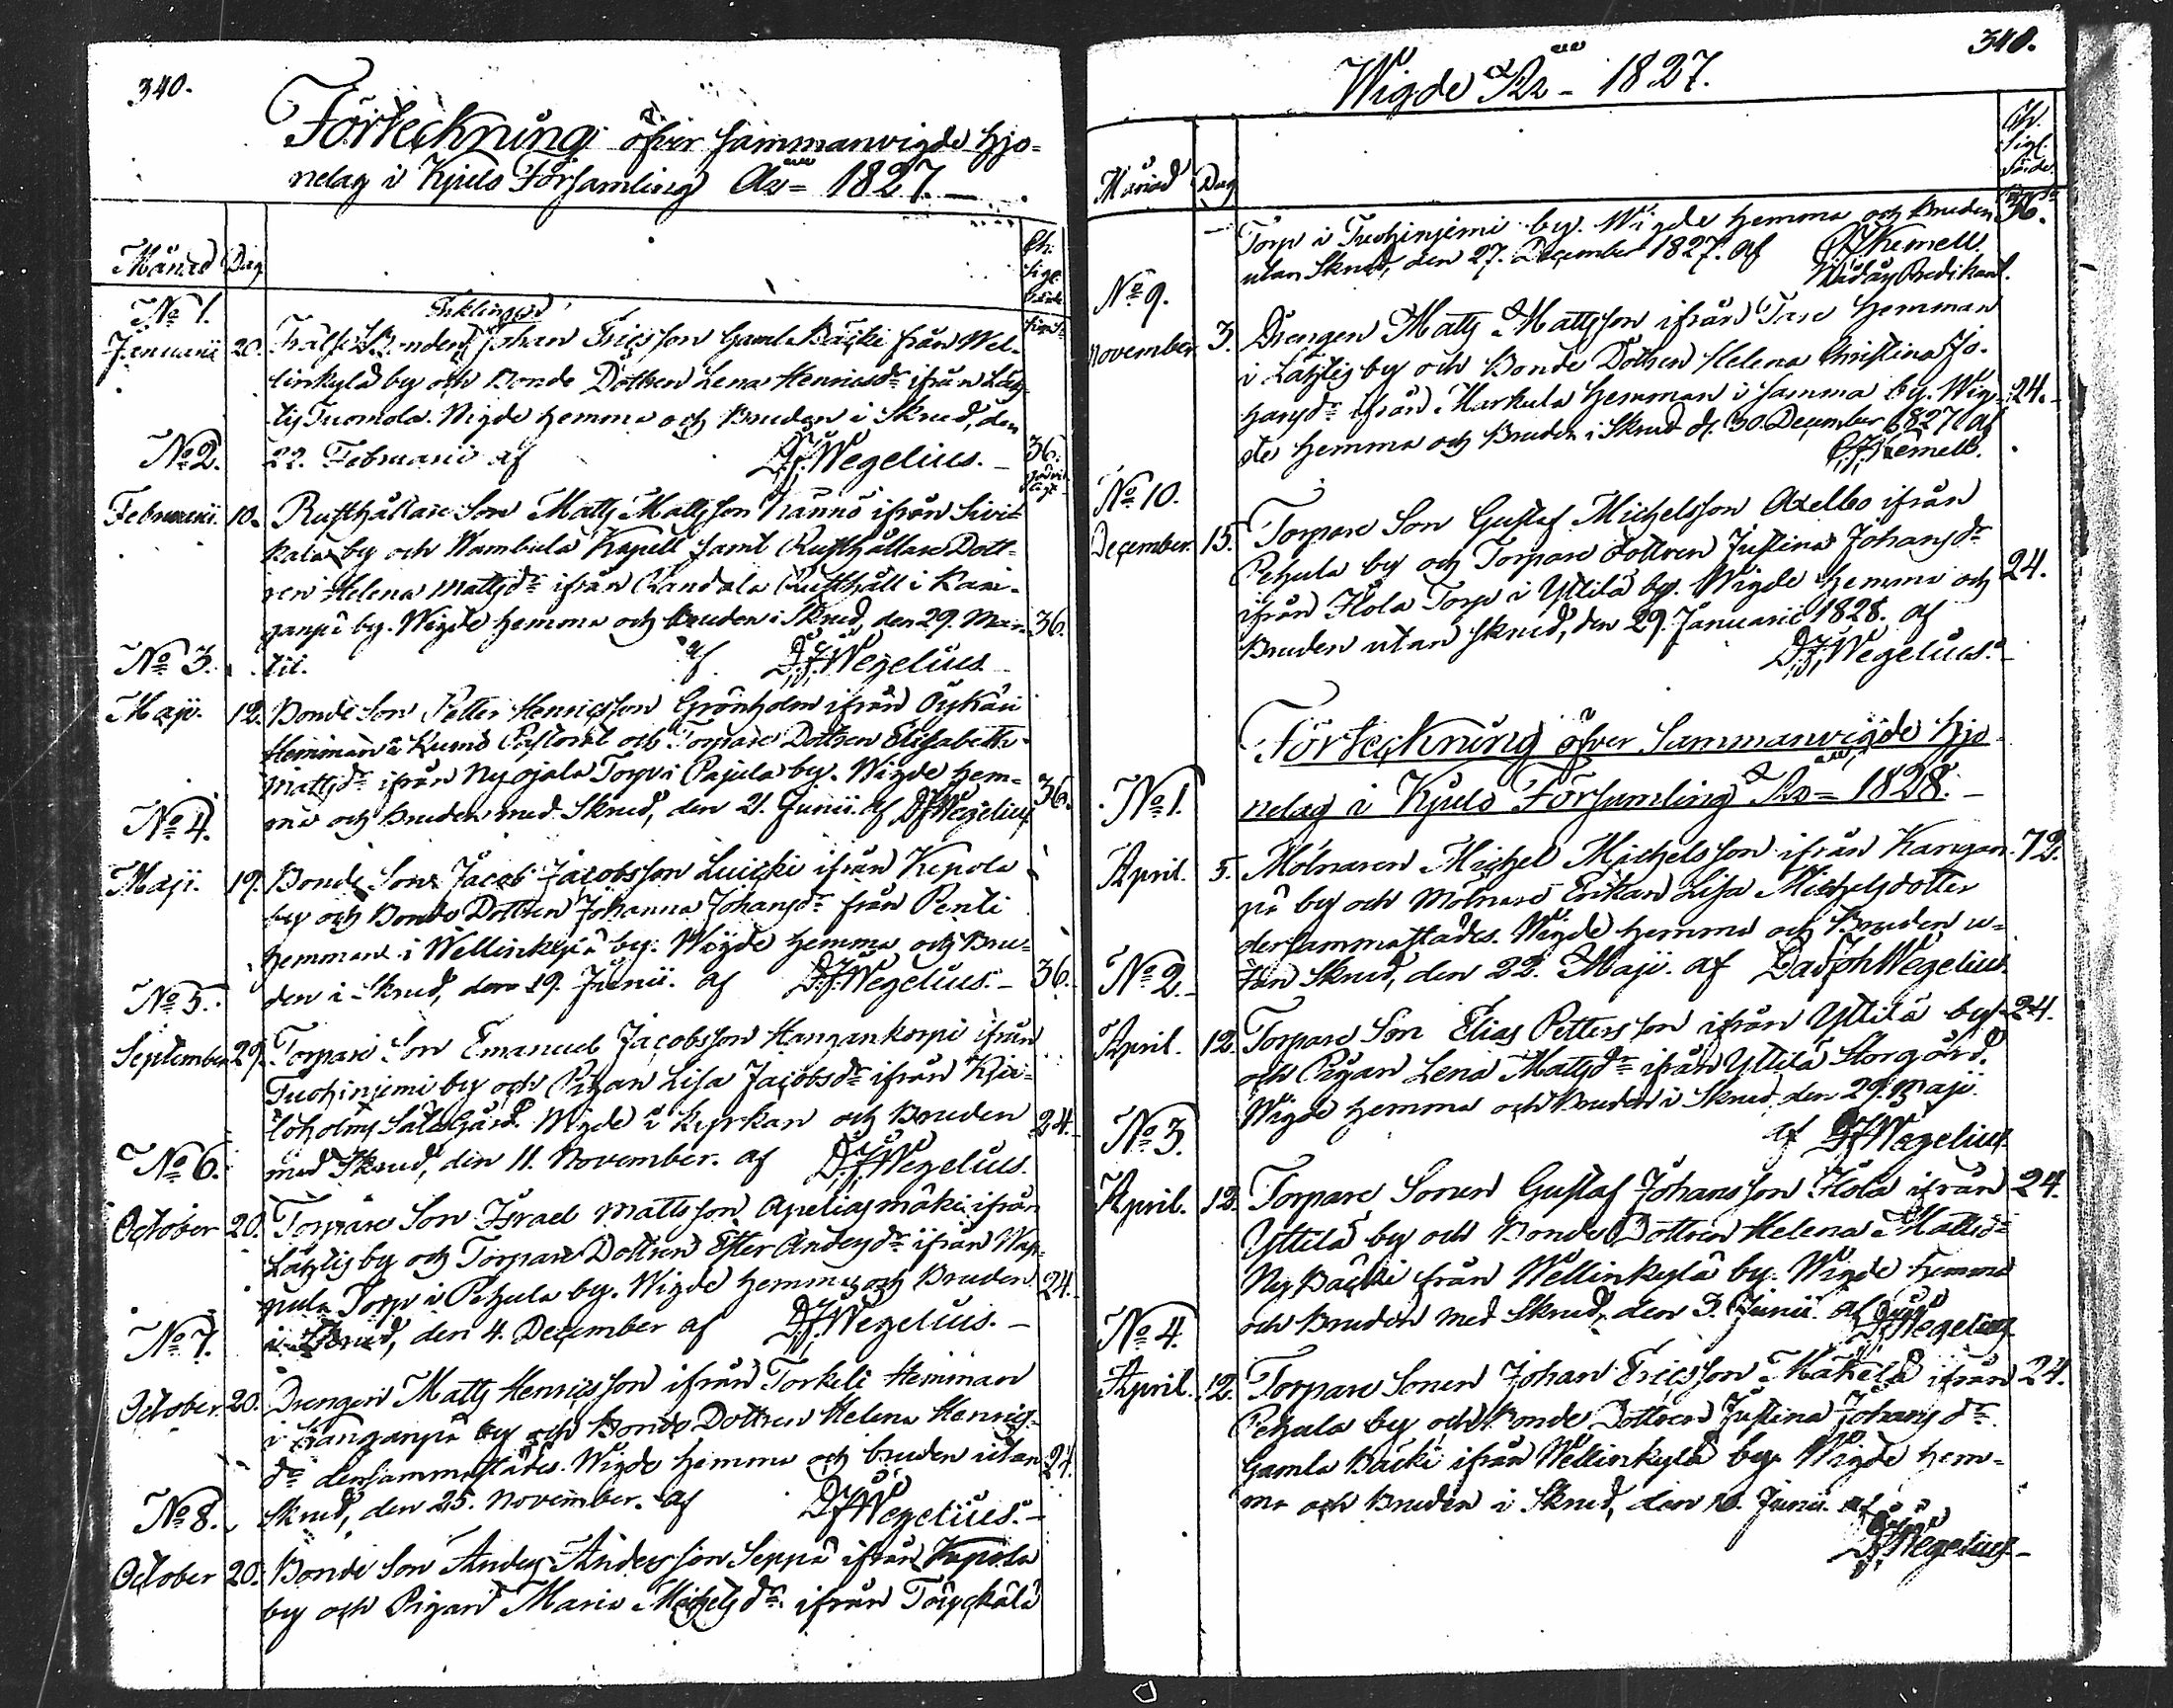 340.
Förteckning öfver sammanvigde hjo=
nelag i Kjulo Församling År 1827.
Månad Dag
No 1. Enklingen
Januarii 20. Frälse Bonden Johan Ericsson Gaml Bäcki från Wel-
linkylä by och Bonde Dottren Lena Henricsdr ifrån Läh-
tis Tuomola. Vigde hemma och Bruden i Skrud, den
No 2. 22. Februarii af D.J. Wegelius. 36.
Februarii. 10. Rusthållare Son Matts Mattsson Nanno ifrån Sivi-
kala by och Wambula Kapell samt Rusthållare Dott-
ren Helena Mattsdr ifrån Randala Rusthåll i Kan-
ganpä by. Wigde hemma och Bruden i Skrud, den 29. Mar- 36.
No 3. tii. af D.J. Wegelius
Maji. 12. Bonde Son Petter Henricsson Grönholm ifrån
Hemman i Kumo Pastorat och Torpare Dottren Elisabeth
Mattsdr ifrån Nyojala Torp i Pajula by. Wigde hem- 36.
No 4. ma och Bruden med Skrud, den 21. Junii. af DJWegelius
Maji. 19. Bonde Son Jacob Jacobsson Luicki ifrån Kepola
by och Bonde Dottren Johanna Johansdr från Penti
Hemman i Wellinkylä by. Wigde hemma och Bru-
No 5. den i Skrud, den 19. Junii. af D.J. Wegelius. 36.
September 29. Torpare Son Emanuel Jacobsson Hangankorpi ifrån
Tuohiniemi by och Pigan Lisa Jacobsdr ifrån Kju-
loholms Sätesgård. Wigde i Kyrkan och Bruden 24.
No 6. med Skrud, den 11. November. af D.J. Wegelius.
October 20. Torpare Son Israel Mattsson Apeliasmäki ifrån
Lähtis by och Torpare Dottren Ester Andersdr ifrån Wap-
pula Torp i Pehula by. Wigde hemma och Bruden 24.
No 7. i Skrud, den 4. December af D.J. Wegelius.
October. 20. Drengen Matts Henricsson ifrån Torkeli Hemman
i Kanganpä by och Bonde Dottren Helena Henrics-
dr densammastädes. Wigde hemma och bruden utan 24.
No 8. Skrud, den 25. November. af DJWegelius.
October 20. Bonde Son Anders Andersson Seppä ifrån Kepola
by och Pigan Maria Michelsdr ifrån
340.
Wigde År 1827.
Månad Dag
Torp i Tuohiniemi by. Wigde hemma och Bruden 36.
utan Skrud, den 27. December 1827. af Kemell.
No 9. Nådårs Predikant.
November 3. Drengen Matts Mattsson ifrån Tare Hemman
i Lähtis by och Bonde Dottren Helena Christina Jo-
hansdr ifrån Markula Hemman i samma by. Wig- 24.
de hemma och Bruden i Skrud d. 30. December 1827 af
Kemell.
No 10.
December. 15. Torpare Son Gustaf Michelsson Axelbo ifrån
Pehula by och Torpare Dottren Justina Johansdr
ifrån Ilola Torp i Yttilä by. Wigde hemma och 24.
Bruden utan skrud, den 29. Januarii 1828. af
D.J. Wegelius.
Förteckning öfver Sammanvigde hjo-
No 1. nelag i Kjulo Församling År 1828.
April. 5. Mölnaren Michel Michelsson ifrån Kangan- 72.
pä by och Mölnare Enkan Lisa Michelsdotter
dersammastädes. Wigde hemma och Bruden u-
No 2. tan Skrud, den 22. Maji. af Dav Joh Wegelius.
April. 12. Torpare Son Elias Pettersson ifrån Yttilä by 24.
och Pigan Lena Mattsdr ifrån Yttilä Storgård.
Wigde hemma och Bruden i Skrud den 29. Maji.
No 3. af DJWegelius
April. 12. Torpare Sonen Gustaf Johansson Ilola ifrån 24.
Yttilä by och Bonde Dottren Helena Mattsdr
Ny Bäcki från Wellinkylä by. Wigde hemma
och Bruden med Skrud, den 3. Junii. af
No 4. DJWegelius
April. 12. Torpare Sonen Johan Ericsson Mäkelä ifrån 24.
Pehula by och Bonde Dottren Justina Johansdr
Gamla Bäcki ifrån Wellinkylä by. Wigde hem-
ma och Bruden i Skrud, den 10. Junii. af
DJWegelius